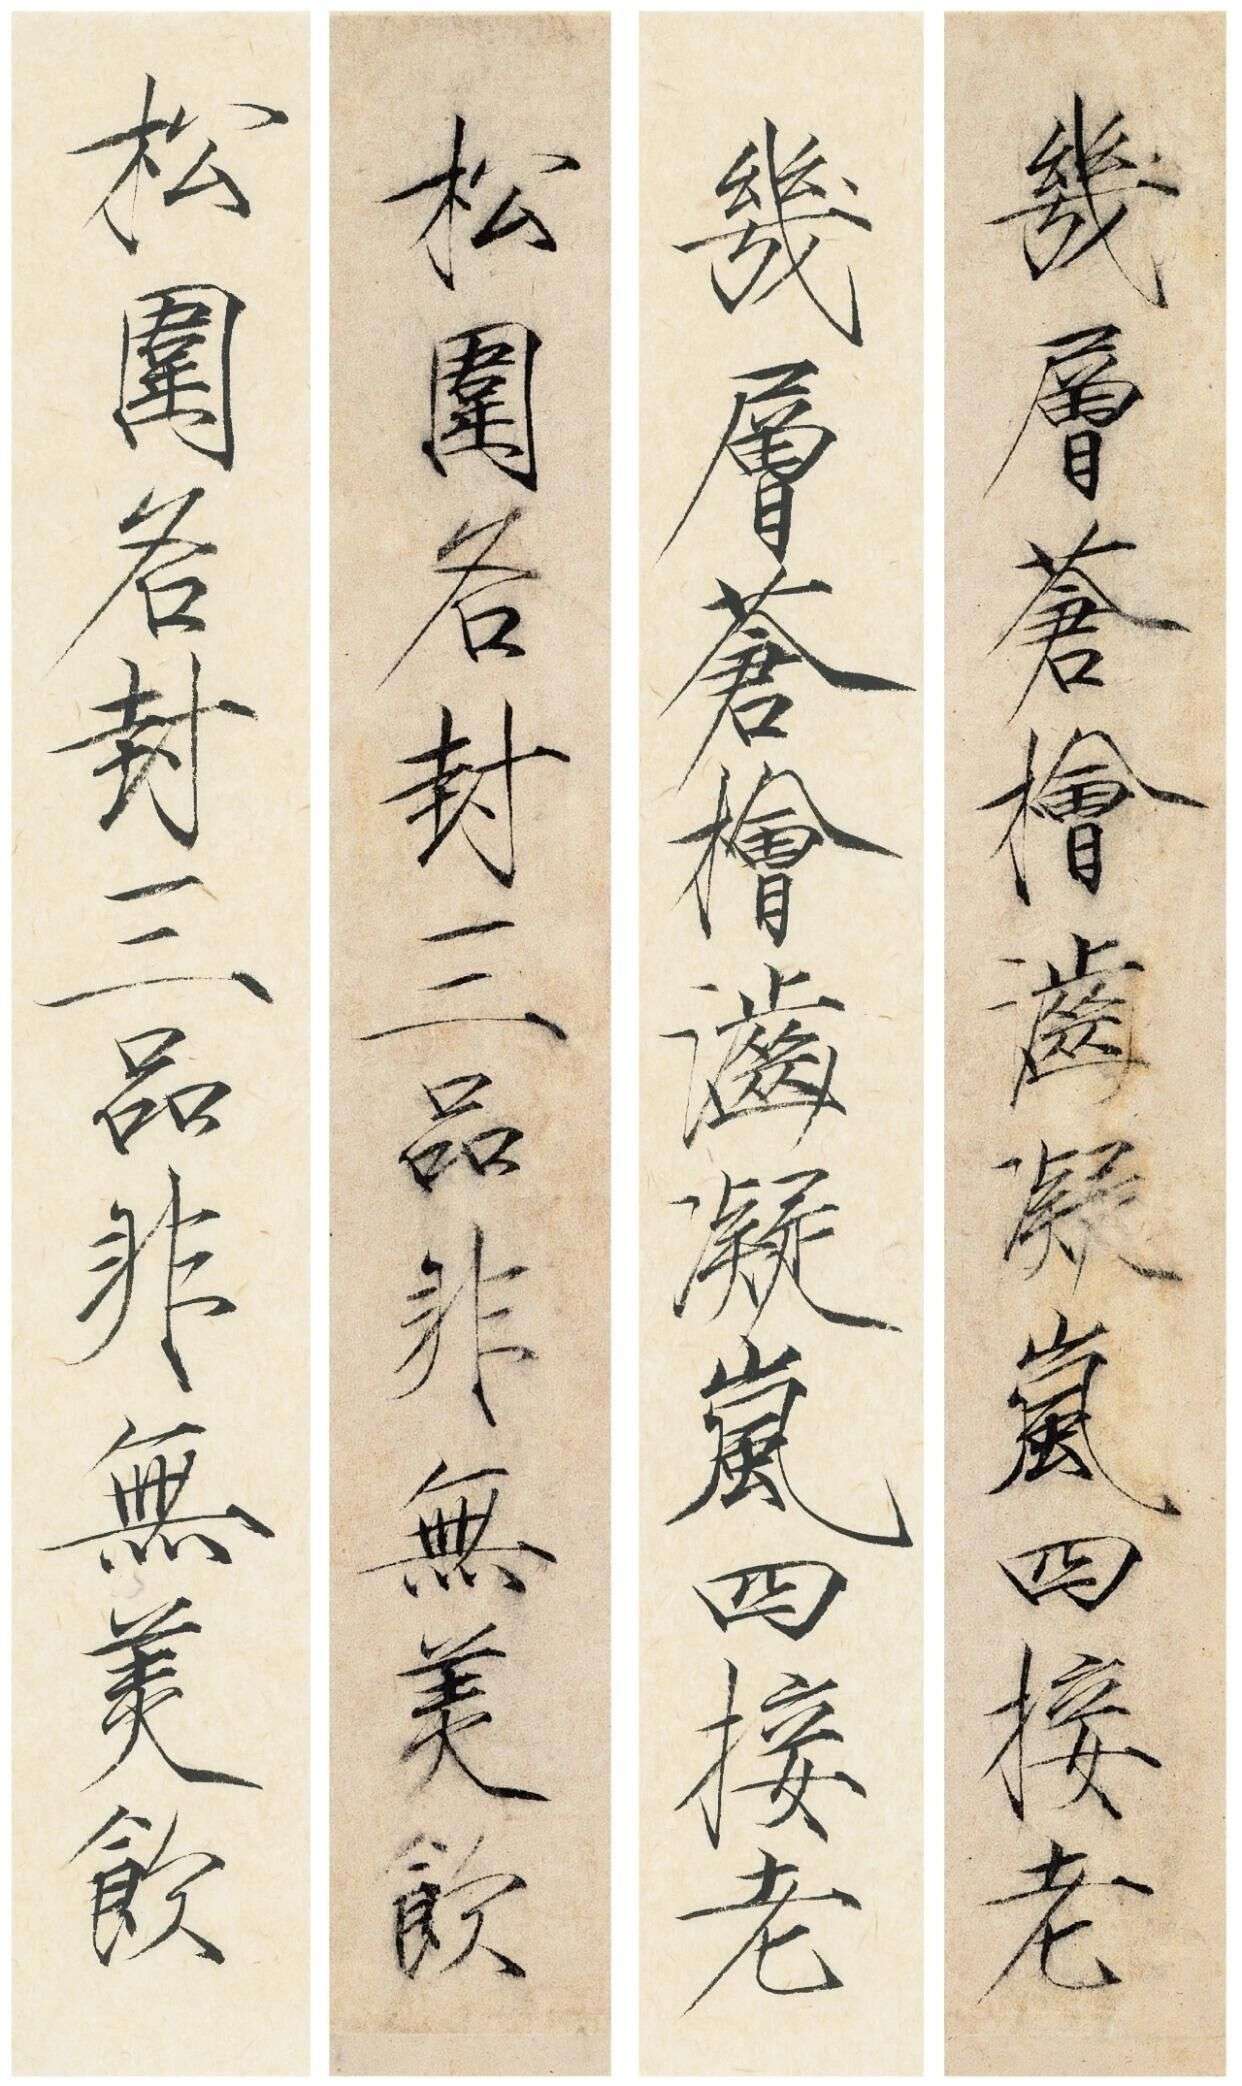 幾層蒼檜濇凝嵐四接老
幾層蒼檜濇凝嵐四接老
松圍各封三品非無美飲
松圍各封三品非無美飲